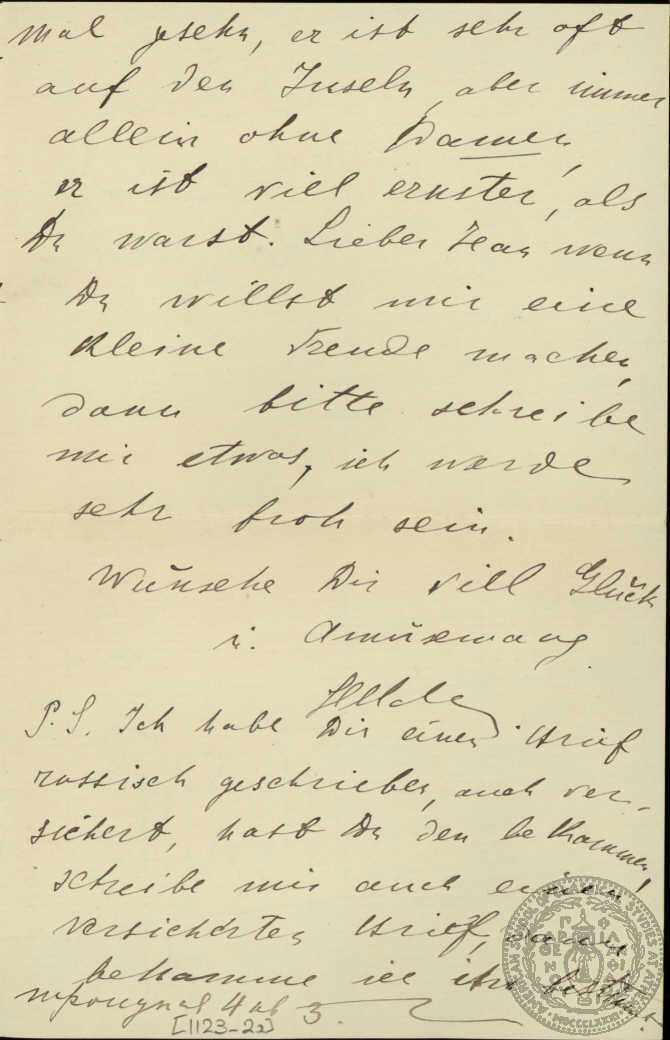 mal gesehn, er ist sehr oft
auf den Inseln, aber immer
allein ohne Damen,
er ist viel ernster, als
Du warst. Lieber Jean wenn
Du willst mir eine
kleine Freude machen,
dann bitte schreibe
mir etwas, ich werde
sehr froh sein.
Wünsche Dir vill Glück
u. Amüsemang
P. S. Ich habe Dir einen Brief
russisch geschrieben, auch ver-
sichert, hast Du den bekommen,
schreibe mir auch einen
versicherten Brief, dann
bekomme ich ihn
4 3.
[1123-2a]
AMERICAN SCHOOL OF CLASSICAL STUDIES AT ATHENS
MDCCCLXXXI